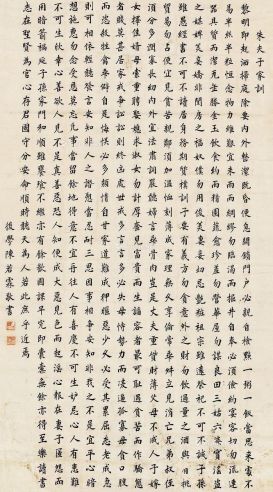 朱夫子家訓
黎明即起洒掃庭除要內外整潔既昏便息關鎖門户必親自檢點一粥一飯當思來處不
易半絲半縷恒念物力維艱宜未雨而綢繆勿臨渴而掘井自奉必須儉約宴客切勿流連
器具質而潔瓦缶勝金玉飲食約而精園蔬愈珍羞勿營華屋勿謀良田三姑六婆實淫盗
之媒婢美妾嬌非閨房之福奴僕勿用俊美妻妾切忌艷粧祖宗雖遠祭祀不可不誠子孫
雖愚經書不可不讀居身務期質樸訓子要有義方勿貪意外之財勿飲過量之酒與肩挑
貿易勿占便宜見貧苦親鄰須加温恤刻薄成家理無久享倫常乖舛立見消亡兄弟叔侄
須分多潤寡長幼內外宜法肅詞嚴聽婦言乖骨肉豈是丈夫重貲財薄父母不成人子嫁
女擇佳婿毋索重聘娶媳求淑女勿計厚奩見富貴而生諂容者最可耻遇貧窮而作驕態
者賤莫甚居家戒争訟訟則終凶處世戒多言言多必失毋恃勢力而凌逼孤寡毋貪口腹
而恣殺牲禽乖僻自是悔誤必多頹惰自甘家道難成狎暱惡少久必受其累屈志老成急
則可相依輕聽發言安知非人之譖愬當忍耐三思因事相争安知非我之不是宜平心暗
想施惠勿念受恩莫忘凡事當留餘地得意不宜再往人有喜慶不可生妒忌心人有禍患
不可生欣幸心善欲人見不是真善惡恐人知便成大惡見色而起淫心報在妻子匿怨而
用暗箭禍延子孫家門和順雖饔飧不繼亦有餘歡國課早完即囊橐無餘亦得至樂讀書
志在聖賢為官心存君國守分安命順時聽天為人若此庶乎近焉
後學陳若霖敬書